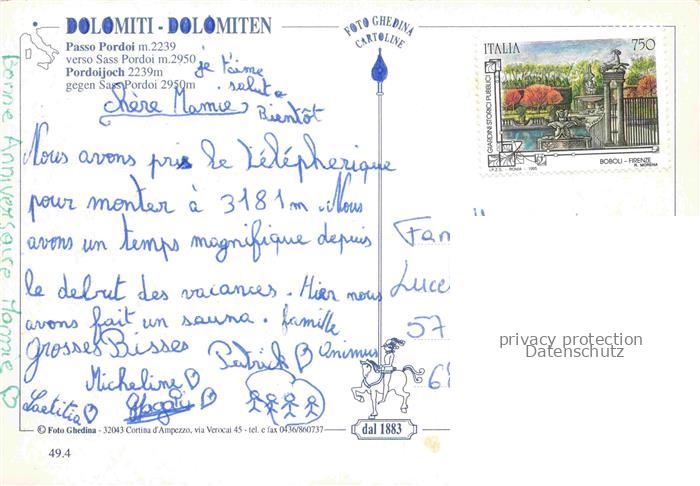 DOLOMITI - DOLOMITEN
Passo Pordoi m.2239
verso Sass Pordoi m.2950
Pordoijoch 2239m
gegen Sass Pordoi 2950m
FOTO GHEDINA
CARTOLINE
ITALIA 750
GIARDINI STORICI PUBBLICI
BOBOLI - FIRENZE
R. MORENA
I.P.Z.S. - ROMA - 1995
je t'aime
salut
Bientôt
chère Mamie
Nous avons pris le téléphérique
pour monter à 3181m. Nous
avons un temps magnifique depuis
le debut des vacances. Hier nous
avons fait un sauna. famille
Grosses Bisses Patrick
Micheline
Laetitia
Bonne Anniversaire Mamie
Fam
Luce
57
6
privacy protection
Datenschutz
© Foto Ghedina - 32043 Cortina d'Ampezzo, via Verocai 45 - tel. e fax 0436/860737
dal 1883
49.4